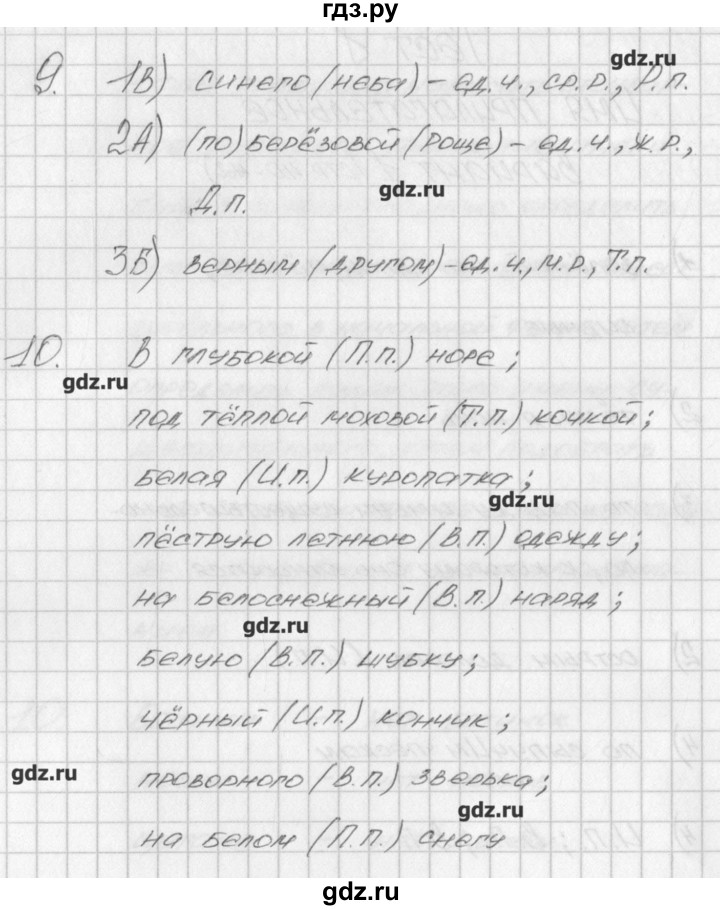 гдз.ру
gdz.ru
9. 1В) синего (неба) - ед.ч., ср.р., Р.п.
2А) (по) берёзовой (роще) - ед.ч., ж.р.,
gdz.ru
Д.п.
3Б) верным (другом) - ед.ч., м.р., Т.п.
10. В глубокой (П.п.) норе;
gdz.ru
под тёплой моховой (Т.п.) кочкой;
белая (И.п.) куропатка;
gdz.ru
пёструю летнюю (В.п.) одежду;
на белоснежный (В.п.) наряд;
gdz.ru
белую (В.п.) шубку;
чёрный (И.п.) кончик;
gdz.ru
проворного (В.п.) зверька;
gdz.ru
на белом (П.п.) снегу
gdz.ru